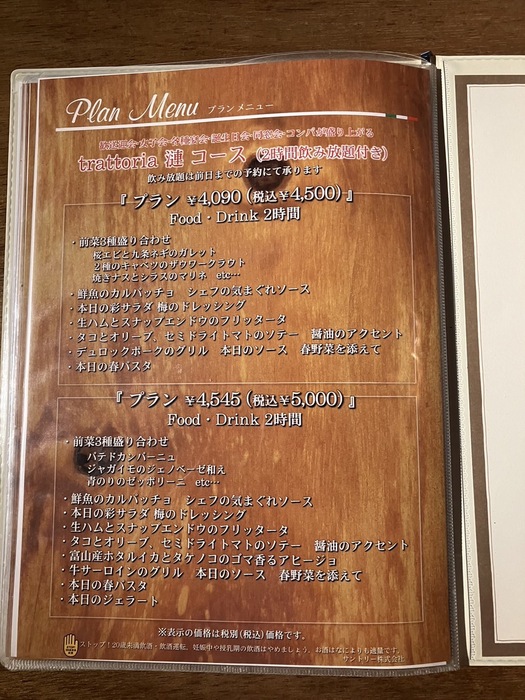 Plan Menu プランメニュー
歓送迎会・女子会・各種宴会・誕生日会・同窓会・コンパが盛り上がる
trattoria 漣 コース (2時間飲み放題付き)
飲み放題は前日までの予約にて承ります
『 プラン ¥4,090 (税込¥4,500) 』
Food・Drink 2時間
・前菜3種盛り合わせ
桜エビと九条ネギのガレット
2種のキャベツのザウワークラウト
焼きナスとシラスのマリネ etc…
・鮮魚のカルパッチョ シェフの気まぐれソース
・本日の彩サラダ 梅のドレッシング
・生ハムとスナップエンドウのフリッタータ
・タコとオリーブ、セミドライトマトのソテー 醤油のアクセント
・デュロックポークのグリル 本日のソース 春野菜を添えて
・本日の春パスタ
『 プラン ¥4,545 (税込¥5,000) 』
Food・Drink 2時間
・前菜3種盛り合わせ
パテドカンパーニュ
ジャガイモのジェノベーゼ和え
青のりのゼッポリーニ etc…
・鮮魚のカルパッチョ シェフの気まぐれソース
・本日の彩サラダ 梅のドレッシング
・生ハムとスナップエンドウのフリッタータ
・タコとオリーブ、セミドライトマトのソテー 醤油のアクセント
・富山産ホタルイカとタケノコのゴマ香るアヒージョ
・牛サーロインのグリル 本日のソース 春野菜を添えて
・本日の春パスタ
・本日のジェラート
※表示の価格は税別(税込)価格です。
ストップ!20歳未満飲酒・飲酒運転。妊娠中や授乳期の飲酒はやめましょう。お酒はなによりも適量です。
サントリー株式会社